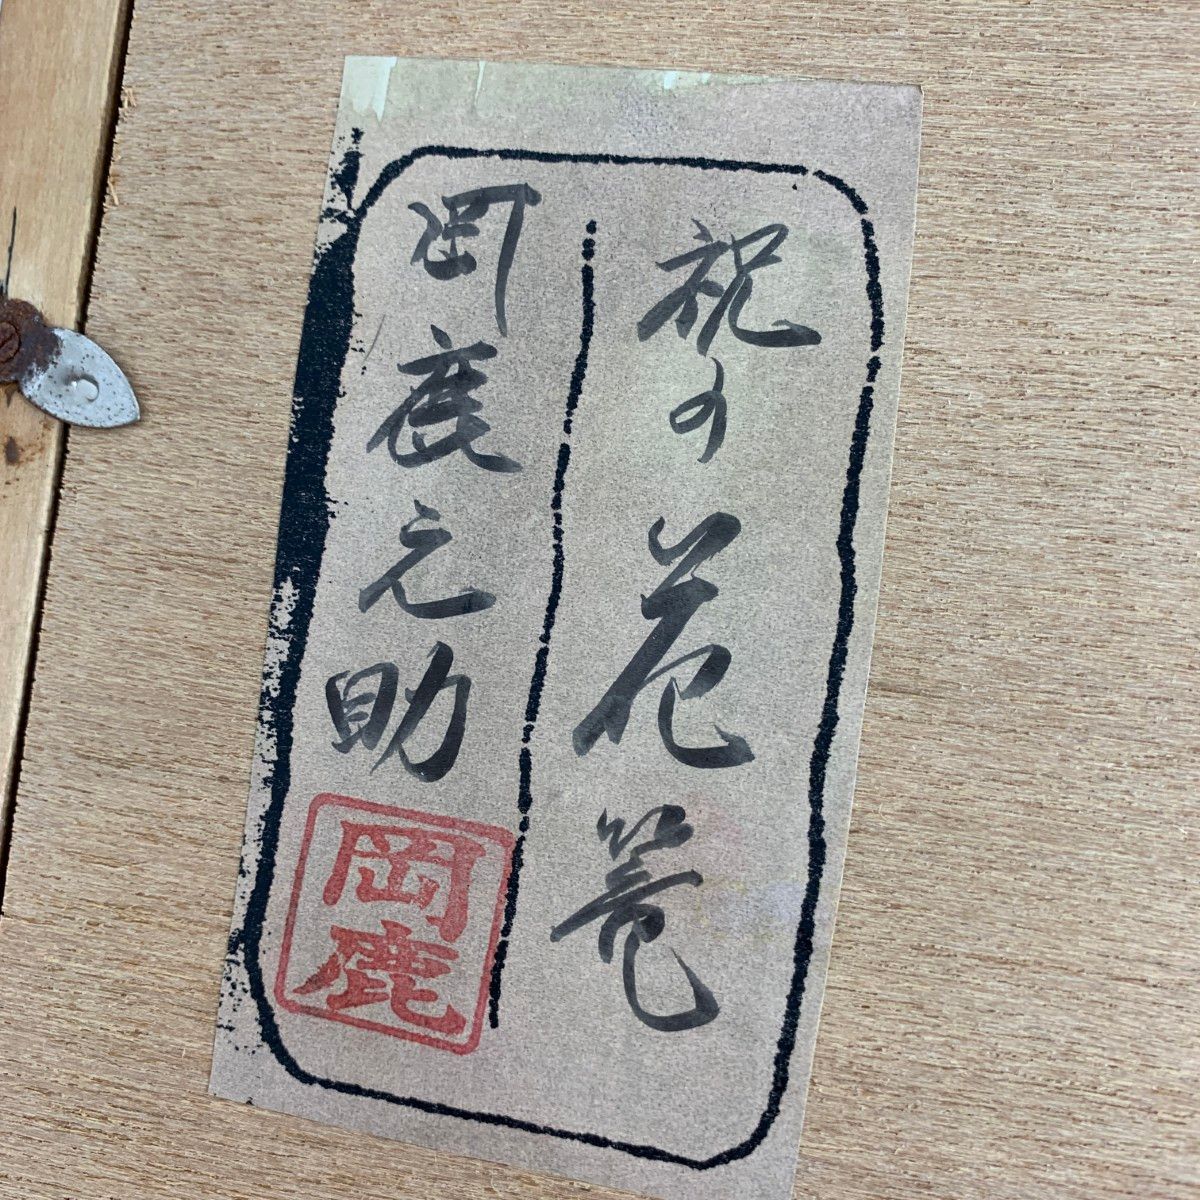 祝の花篭
岡鹿之助
岡鹿